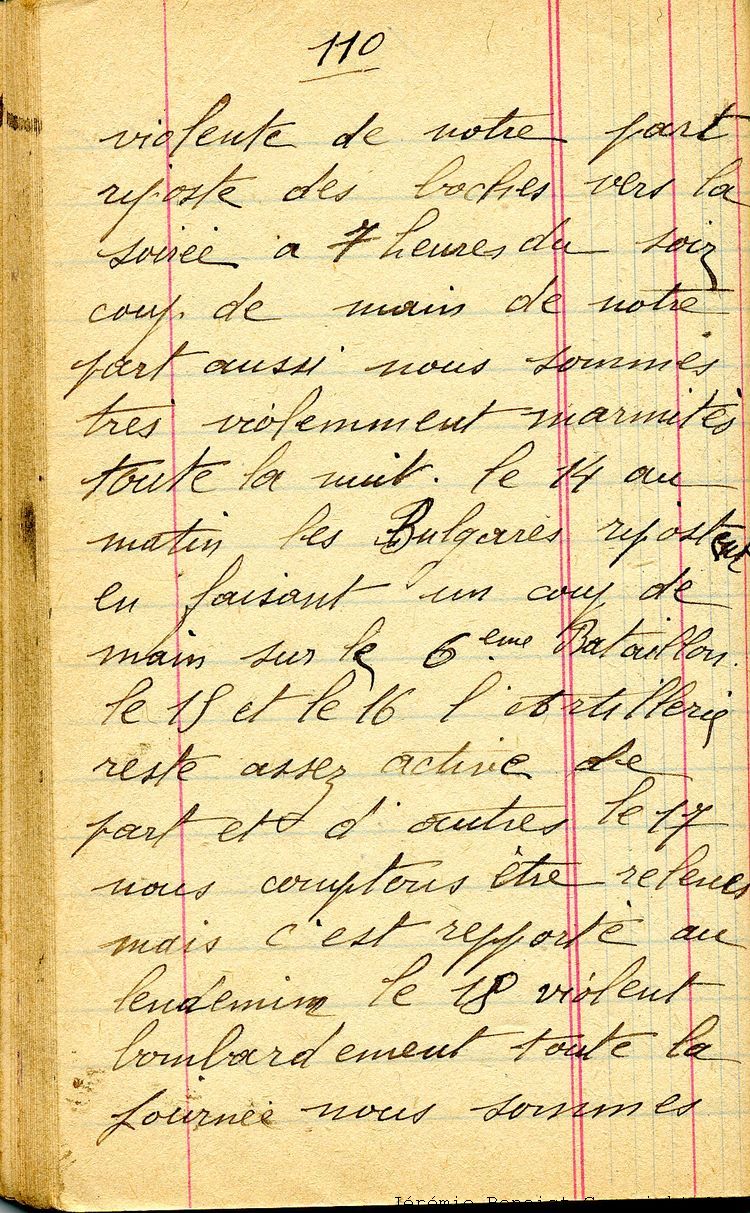 110
violente de notre part
riposte des boches vers la
soirée a 7 heures du soir
coup de main de notre
part aussi nous sommes
tres violemment marmités
toute la nuit. le 14 au
matin les Bulgares ripostent
en faisant un coup de
main sur le 6 eme Bataillon.
le 15 et le 16 l'Artillerie
reste assez active de
part et d'autres le 17
nous comptons être relevés
mais c'est repporté au
lendemin le 18 violent
bombardement toute la
journée nous sommes
Jérémie Benoist